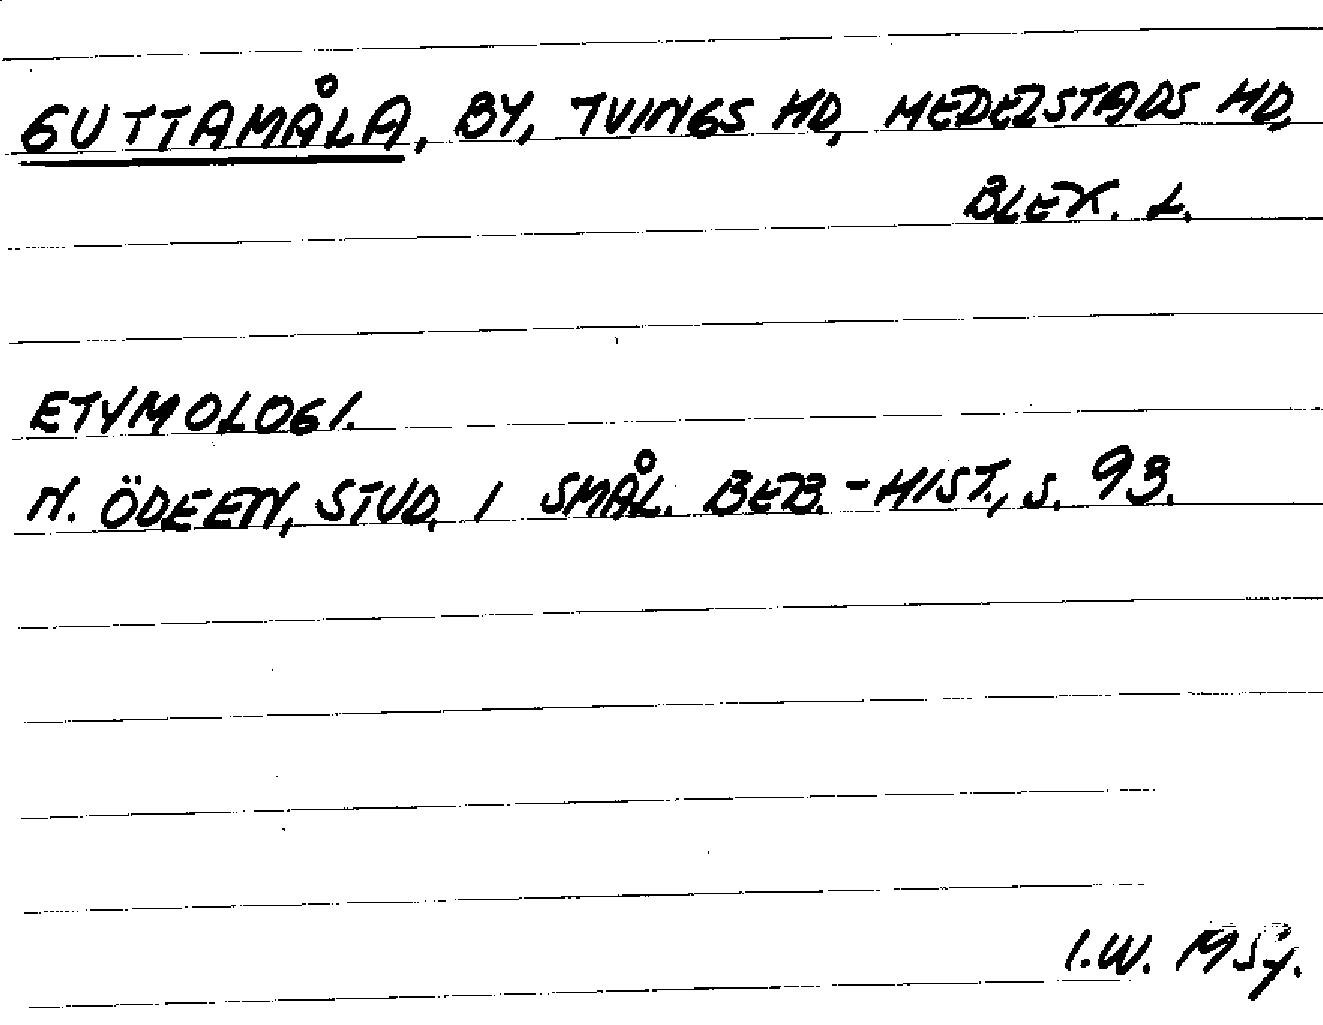 GUTTAMÅLA, BY, TVINGS HD, MEDELSTADS HD,
BLEK. L.
ETYMOLOGI.
N. ÖDEEN, STUD. I SMÅL. BEB.-HIST., S. 93.
I.W.